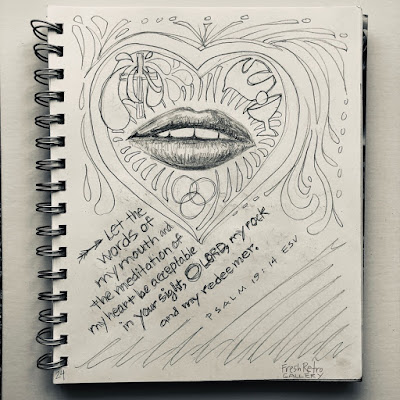 Let the
words of
my mouth and
the meditation of
my heart be acceptable
in your sight, O LORD, my rock
and my redeemer.
PSALM 19:14 ESV
24
FreshRetro
GALLERY